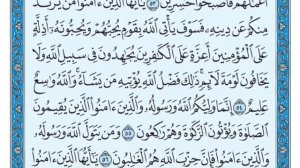 أَعْمَٰلُهُمْ فَأَصْبَحُوا۟ خَٰسِرِينَ ٥٣ يَٰٓأَيُّهَا ٱلَّذِينَ ءَامَنُوا۟ مَن يَرْتَدَّ
مِنكُمْ عَن دِينِهِۦ فَسَوْفَ يَأْتِى ٱللَّهُ بِقَوْمٍ يُحِبُّهُمْ وَيُحِبُّونَهُۥٓ أَذِلَّةٍ
عَلَى ٱلْمُؤْمِنِينَ أَعِزَّةٍ عَلَى ٱلْكَٰفِرِينَ يُجَٰهِدُونَ فِى سَبِيلِ ٱللَّهِ وَلَا
يَخَافُونَ لَوْمَةَ لَآئِمٍ ذَٰلِكَ فَضْلُ ٱللَّهِ يُؤْتِيهِ مَن يَشَآءُ وَٱللَّهُ وَٰسِعٌ
عَلِيمٌ ٥٤ إِنَّمَا وَلِيُّكُمُ ٱللَّهُ وَرَسُولُهُۥ وَٱلَّذِينَ ءَامَنُوا۟ ٱلَّذِينَ يُقِيمُونَ
ٱلصَّلَوٰةَ وَيُؤْتُونَ ٱلزَّكَوٰةَ وَهُمْ رَٰكِعُونَ ٥٥ وَمَن يَتَوَلَّ ٱللَّهَ وَرَسُولَهُۥ
وَٱلَّذِينَ ءَامَنُوا۟ فَإِنَّ حِزْبَ ٱللَّهِ هُمُ ٱلْغَٰلِبُونَ ٥٦ يَٰٓأَيُّهَا ٱلَّذِينَ